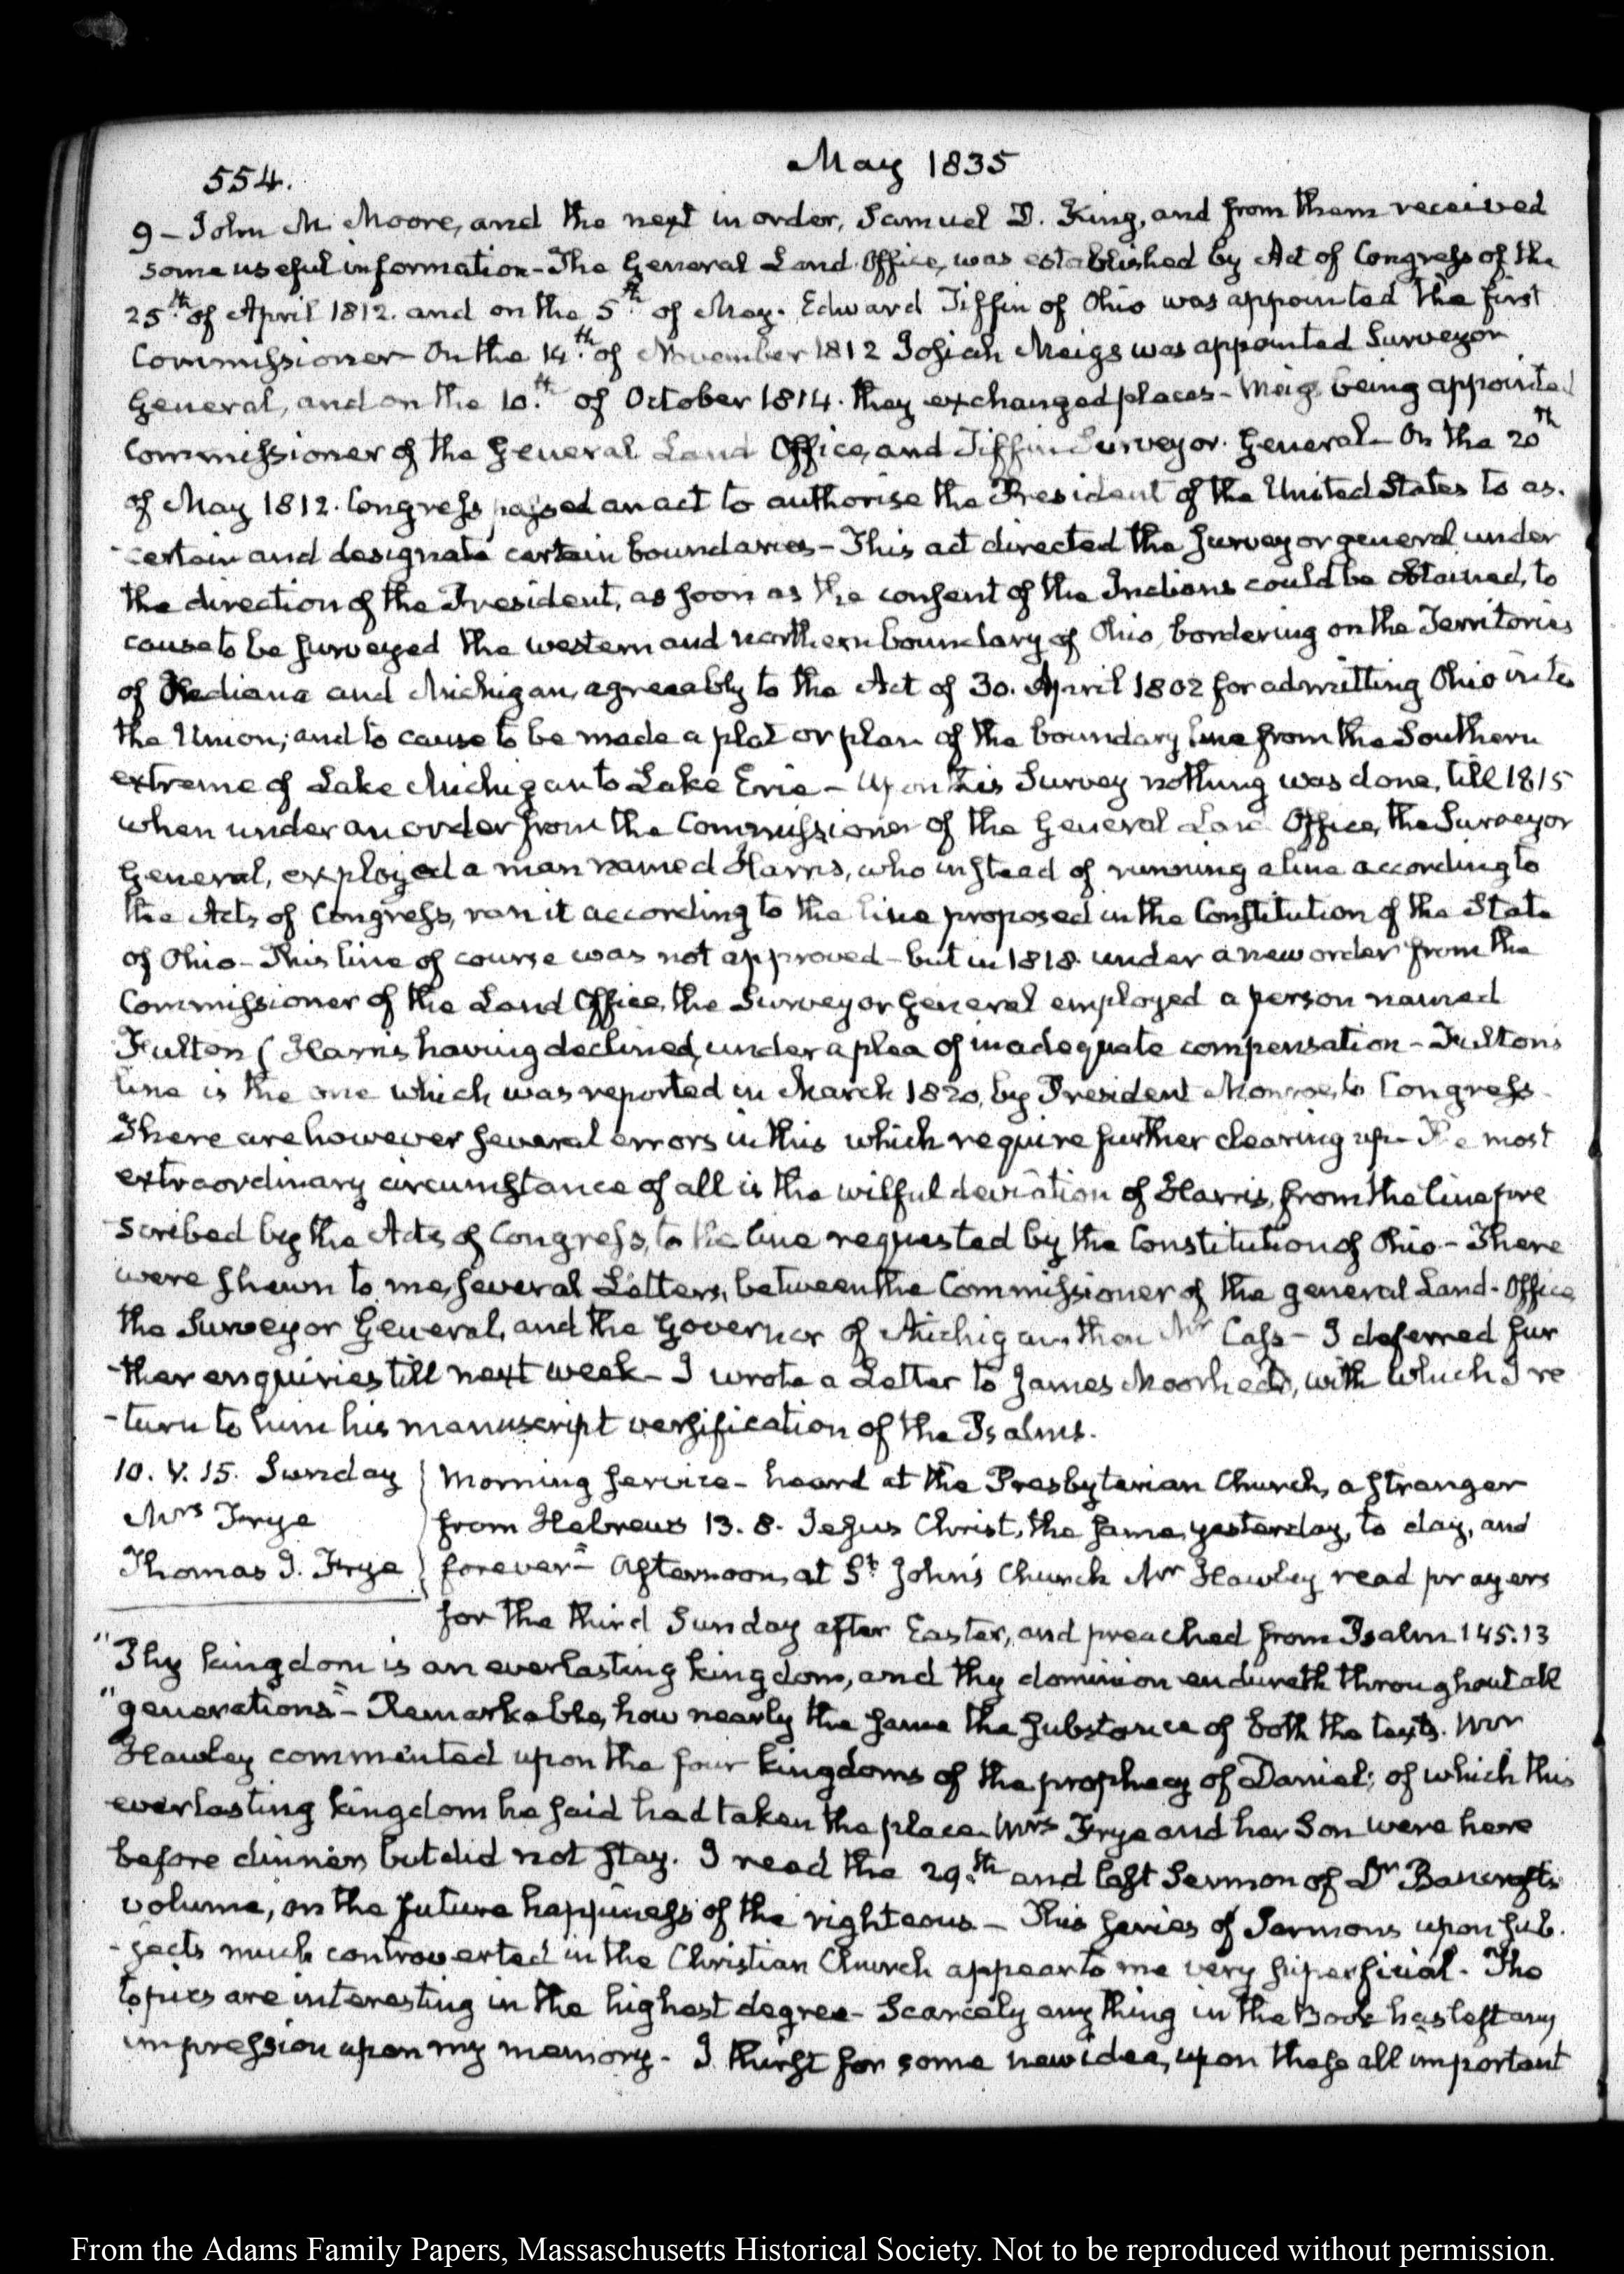 May 1835
554.
9 – John M. Moore, and the next in order, Samuel D. King, and from them received
some useful information – The General Land Office, was established by Act of Congress of the
25th of April 1812. and on the 5th of May. Edward Tiffin of Ohio was appointed the first
Commissioner – On the 14th of November 1812 Josiah Meigs was appointed Surveyor
General, and on the 10th of October 1814. they exchanged places – Meigs being appointed
Commissioner of the General Land Office, and Tiffin Surveyor General – On the 20th
of May 1812. Congress passed an act to authorise the President of the United States to as-
-certain and designate certain boundaries – This act directed the Surveyor general under
the direction of the President, as soon as the consent of the Indians could be obtained, to
cause to be surveyed the western and northern boundary of Ohio, bordering on the Territories
of Indiana and Michigan, agreeably to the Act of 30. April 1802 for admitting Ohio into
the Union; and to cause to be made a plat or plan of the boundary line from the Southern
extreme of Lake Michigan to Lake Erie – Upon this Survey nothing was done, till 1815
when under an order from the Commissioner of the General Land Office, the Surveyor
General, employed a man named Harris, who instead of running a line according to
the Acts of Congress, ran it according to the line proposed in the Constitution of the State
of Ohio – This line of course was not approved – but in 1818. under a new order from the
Commissioner of the Land Office, the Surveyor General employed a person named
Fulton (Harris having declined, under a plea of inadequate compensation – Fulton's
line is the one which was reported in March 1820, by President Monroe, to Congress –
There are however several errors in this which require further clearing up – The most
extraordinary circumstance of all is the wilful deviation of Harris, from the line pre
scribed by the Acts of Congress, to the line requested by the Constitution of Ohio – There
were shewn to me, several Letters, between the Commissioner of the general Land-Office
the Surveyor General, and the Governor of Michigan, then Mr Cass – I deferred fur
-ther enquiries till next week – I wrote a Letter to James Moorhead, with which I re
-turn to him his manuscript versification of the Psalms.
10. V. 15. Sunday
Mrs Frye
Thomas J. Frye
Morning service – heard at the Presbyterian Church, a stranger
from Hebrews 13. 8. Jesus Christ, the same, yesterday, to day, and
forever" – Afternoon, at St John's Church Mr Hawley read prayers
for the third Sunday after Easter, and preached from Psalm 145.13
"Thy kingdom is an everlasting kingdom, and thy dominion endureth throughout all
"generations" – Remarkable, how nearly the same the substance of both the texts. Mr
Hawley commented upon the four kingdoms of the prophecy of Daniel; of which this
everlasting kingdom he said had taken the place. Mrs Frye and her Son were here
before dinner, but did not stay. I read the 29th and last Sermon of Dr Bancroft's
volume, on the future happiness of the righteous. – This series of Sermons upon sub-
-jects much controverted in the Christian Church appear to me very superficial. The
topics are interesting in the highest degree – Scarcely any thing in the Book has left any
impression upon my memory. I thirst for some new idea, upon these all important
From the Adams Family Papers, Massaschusetts Historical Society. Not to be reproduced without permission.